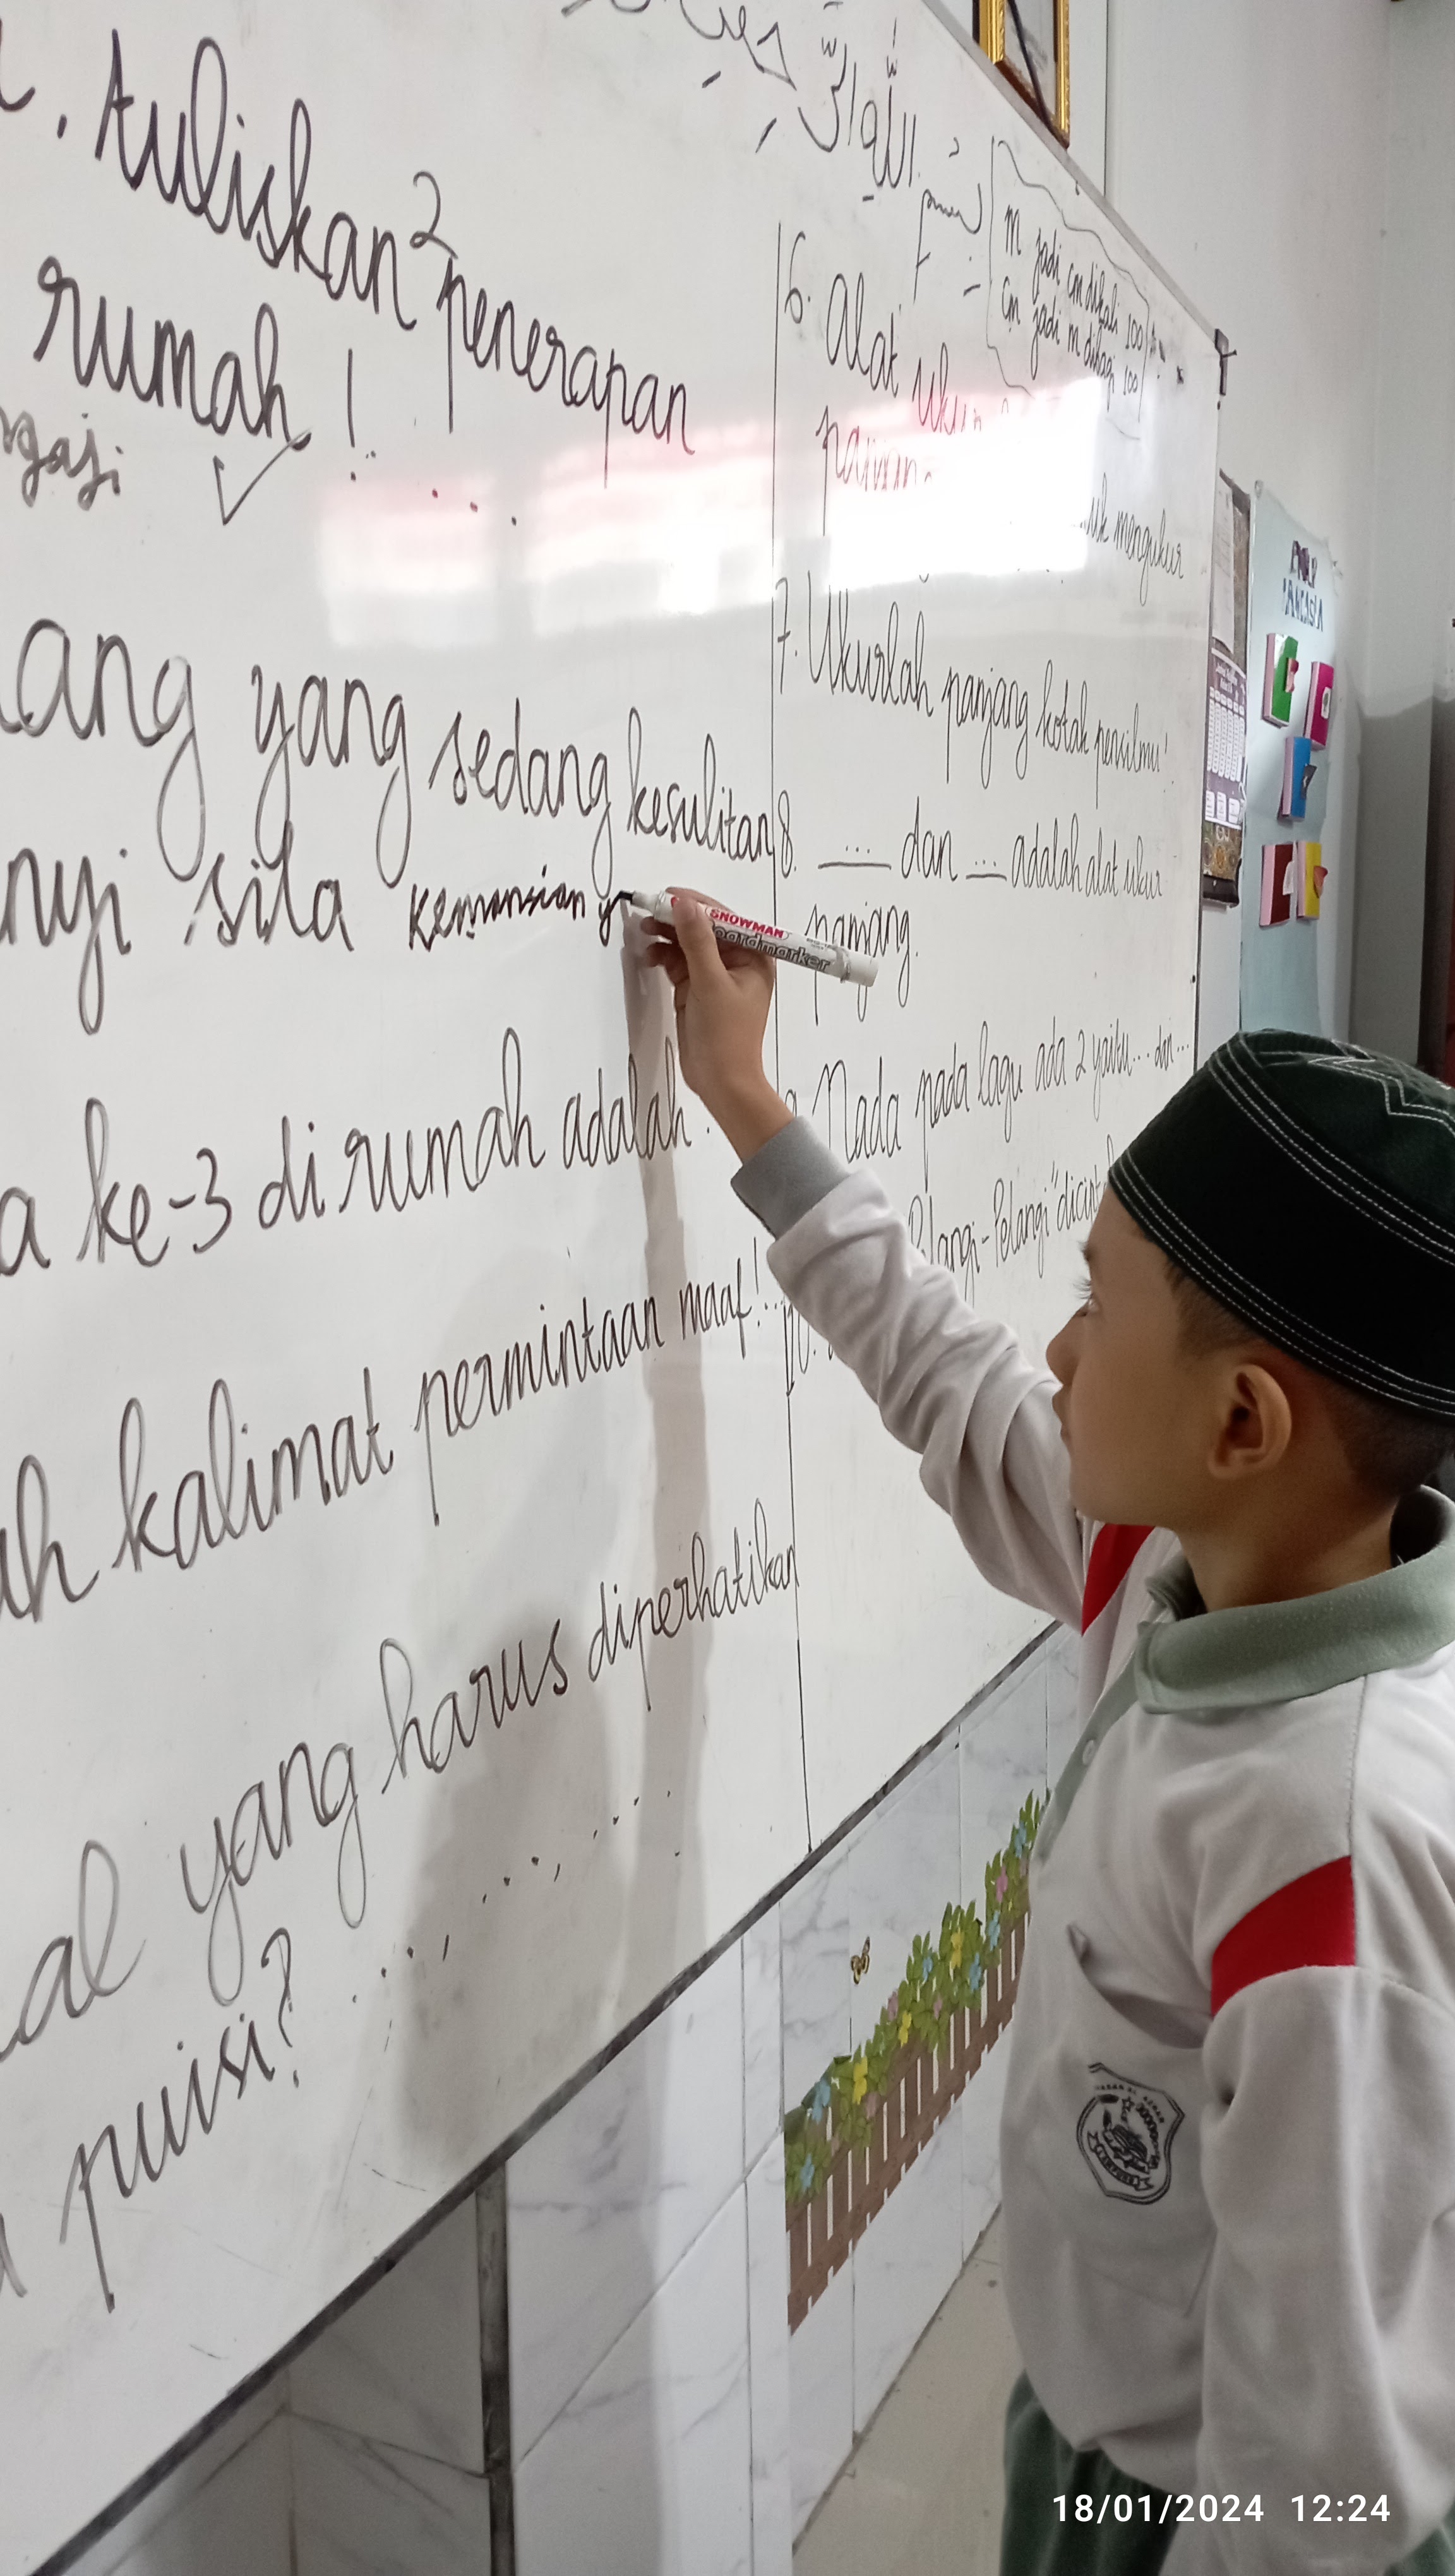 . tuliskan 2 penerapan
rumah!
ngaji
ang yang sedang kesulitan
nyi sila kemansian y
a ke-3 di rumah adalah
ah kalimat permintaan maaf!
al yang harus diperhatikan
puisi?
m jadi cm dikali 100
cm jadi m dibagi 100
6. Alat ukur
mengukur
7. Ukurlah panjang kotak pensilmu!
8. ... dan ... adalah alat ukur
panjang.
9. Nada pada lagu ada 2 yaitu ... dan ...
10.
Pelangi-Pelangi" dicipt
SNOWMAN
boardmarker
18/01/2024 12:24